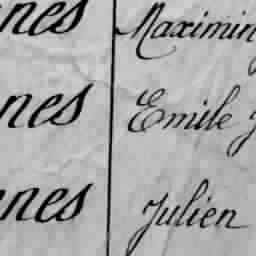 nnes Maximin
nnes Emile J
nnes Julien